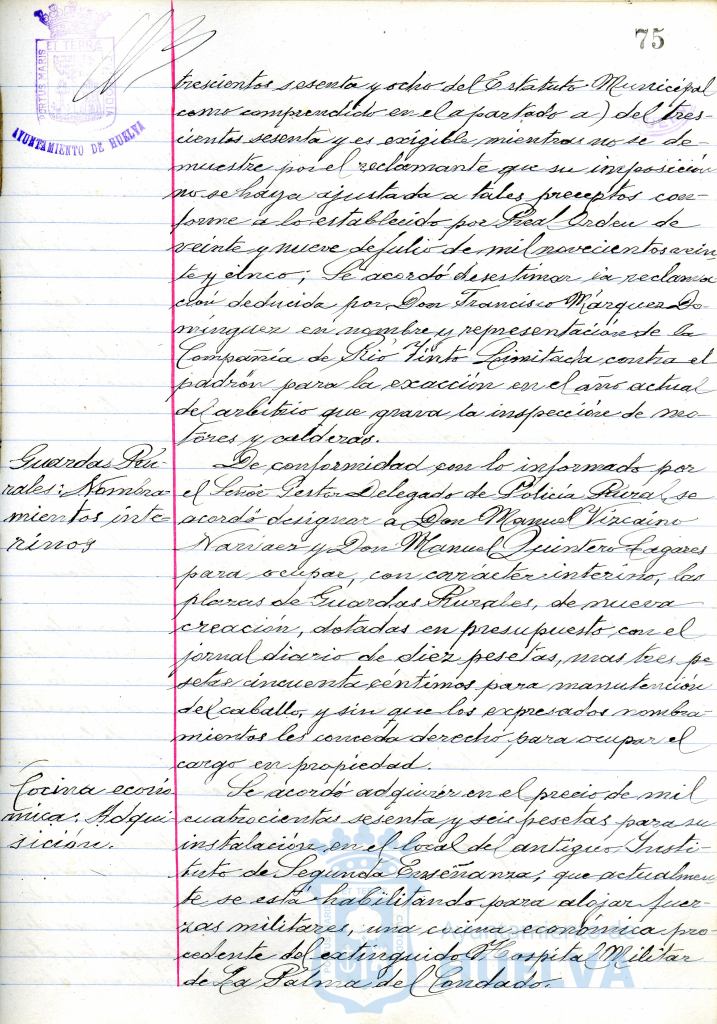 75
PORTUS MARIS ET TERRÆ CUSTODIA
AYUNTAMIENTO DE HUELVA
trescientos sesenta y ocho del Estatuto Municipal
como comprendido en el apartado a) del tres-
cientos sesenta y es exigible, mientras no se de-
muestre por el reclamante que su imposición
no se haya ajustada a tales preceptos con-
forme a lo establecido por Real Orden de
veinte y nueve de julio de mil novecientos vein
te y cinco; Se acordó desestimar la reclama
ción deducida por Don Francisco Márquez Do-
mínguez en nombre y representación de la
Compañía de Rio Tinto Limitada contra el
padrón para la exacción en el año actual
del arbitrio que grava la inspección de mo-
tores y calderas.
Guardas Ru-
rales: Nombra-
mientos inte-
rinos
De conformidad con lo informado por
el Señor Gestor Delegado de Policía Rural, se
acordó designar a Don Manuel Vizcaino
Narvaez y Don Manuel Quintero Cagares
para ocupar, con carácter interino, las
plazas de Guardas Rurales, de nueva
creación, dotadas en presupuesto con el
jornal diario de diez pesetas, mas tres pe
setas cincuenta céntimos para manutención
del caballo, y sin que los expresados nombra-
mientos les conceda derecho para ocupar el
cargo en propiedad.
Cocina econó
mica: Adqui-
sición.
Se acordó adquirir en el precio de mil
cuatrocientas sesenta y seis pesetas para su
instalación en el local del antiguo Insti-
tuto de Segunda Enseñanza, que actualmen-
te se está habilitando para alojar fuer-
zas militares, una cocina económica pro-
cedente del extinguido Hospital Militar
de La Palma del Condado.
Ayuntamiento de
HUELVA